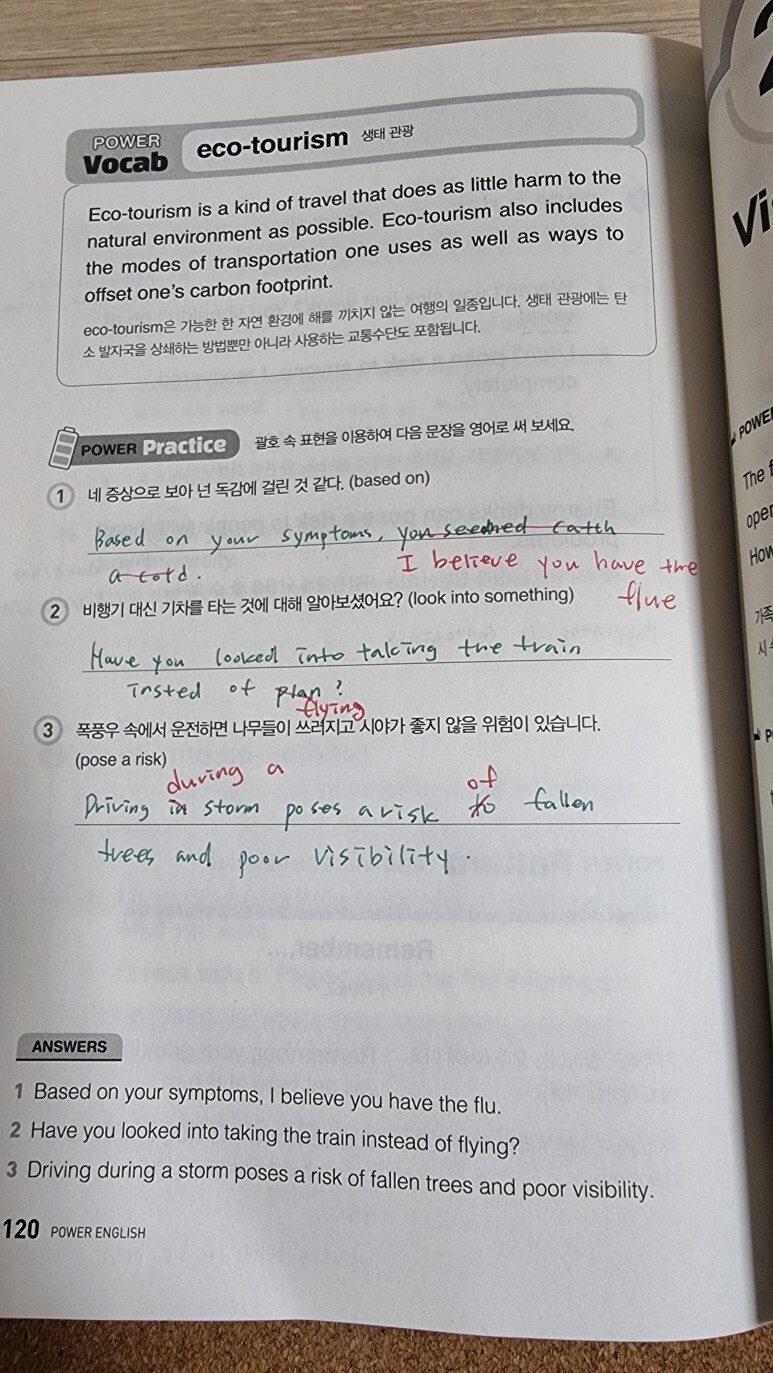 POWER
Vocab eco-tourism 생태 관광
Eco-tourism is a kind of travel that does as little harm to the
natural environment as possible. Eco-tourism also includes
the modes of transportation one uses as well as ways to
offset one's carbon footprint.
eco-tourism은 가능한 한 자연 환경에 해를 끼치지 않는 여행의 일종입니다. 생태 관광에는 탄
소 발자국을 상쇄하는 방법뿐만 아니라 사용하는 교통수단도 포함됩니다.
POWER Practice 괄호 속 표현을 이용하여 다음 문장을 영어로 써 보세요.
1 네 증상으로 보아 넌 독감에 걸린 것 같다. (based on)
Based on your symptoms, you seemed catch
a cold.
I believe you have the
flue
2 비행기 대신 기차를 타는 것에 대해 알아보셨어요? (look into something)
Have you looked into taking the train
insted of plan?
flying
3 폭풍우 속에서 운전하면 나무들이 쓰러지고 시야가 좋지 않을 위험이 있습니다.
(pose a risk)
during a
of
Driving in storm poses a risk to fallen
trees and poor visibility.
ANSWERS
1 Based on your symptoms, I believe you have the flu.
2 Have you looked into taking the train instead of flying?
3 Driving during a storm poses a risk of fallen trees and poor visibility.
120 POWER ENGLISH
2
Vi
POWE
The f
oper
How
가족
시